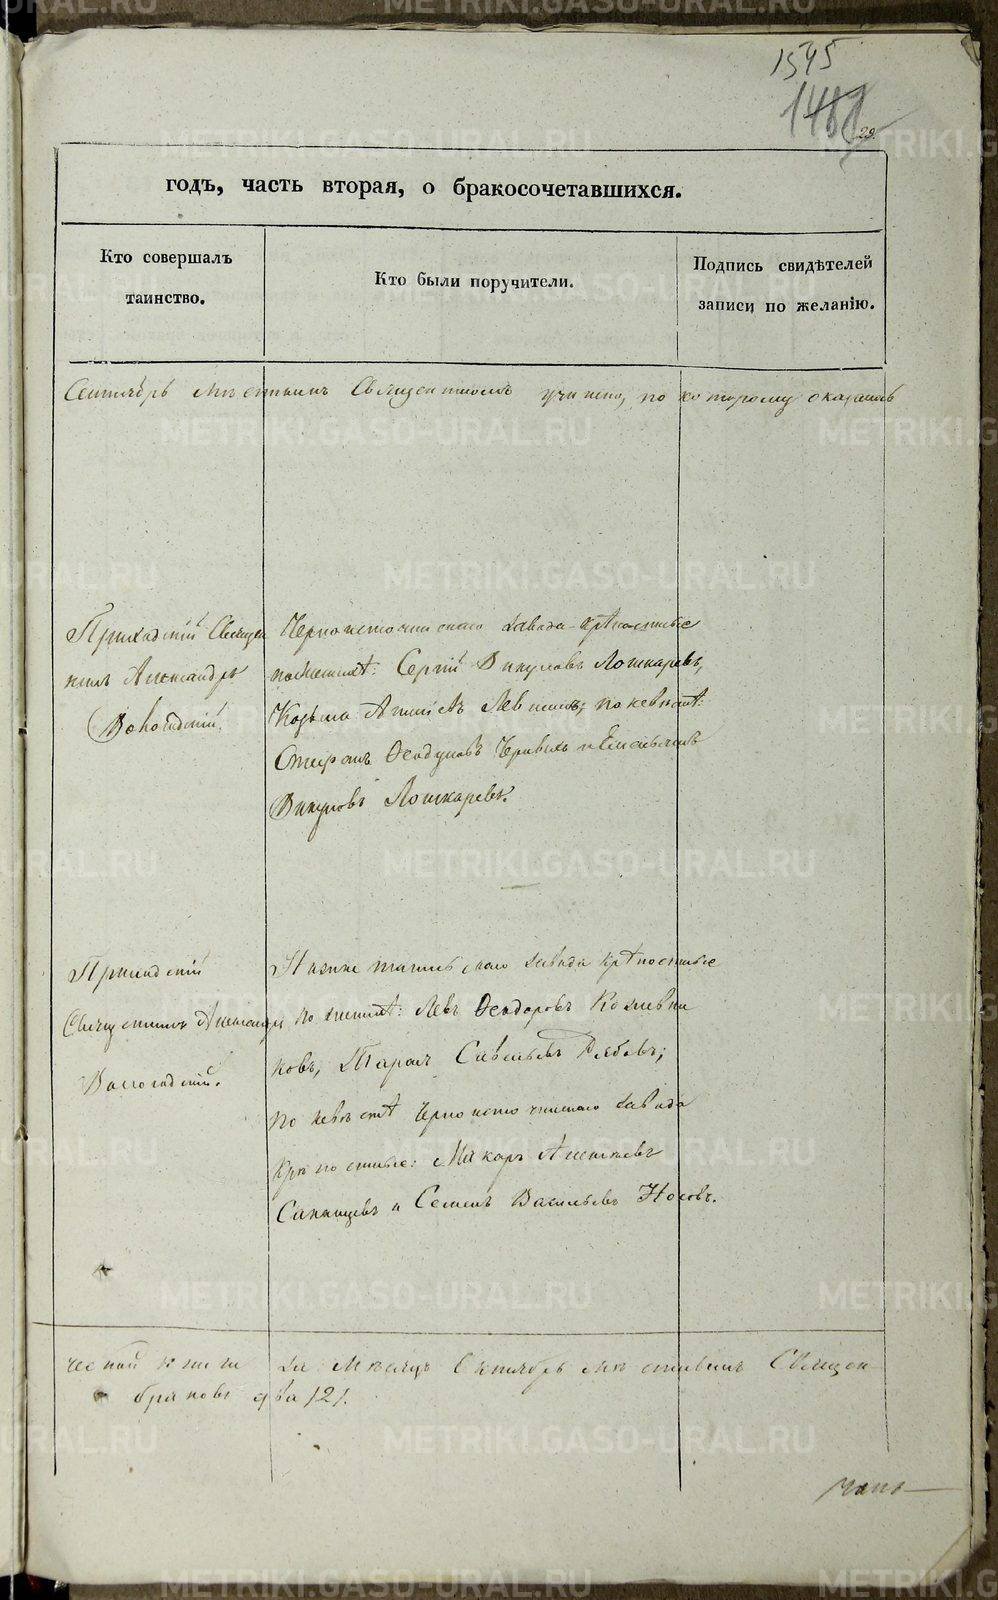 1545
1481
29.
годъ, часть вторая, о бракосочетавшихся.
Кто совершалъ
таинство.
Кто были поручители.
Подпись свидѣтелей
записи по желанію.
Сентябрь мѣстнымъ Священникомъ учинено, по которому оказалось
Приходскій Священ
никъ Александръ
Вологодскій.
Черноисточинскаго завода крѣпостные
по женихѣ: Сергій Викуловъ Лошкаревъ,
Козьма по невѣстѣ:
Стефанъ Ѳеодуловъ Червякъ и Емельянъ
Викуловъ Лошкаревъ.
Приходскій
Священникъ Александръ
Вологодскій.
Нижнетагильскаго завода крѣпостные
по женихѣ: Левъ Ѳеодоровъ Кожевни
ковъ, Тарасъ Савельевъ Рябовъ;
по невѣстѣ Черноисточинскаго завода
крѣпостные: Макаръ Алексѣевъ
и Семенъ Васильевъ Носовъ.
ческой книги за мѣсяцъ Октябрь мѣстнымъ Священ
браковъ два /2/.
METRIKI.GASO-URAL.RU